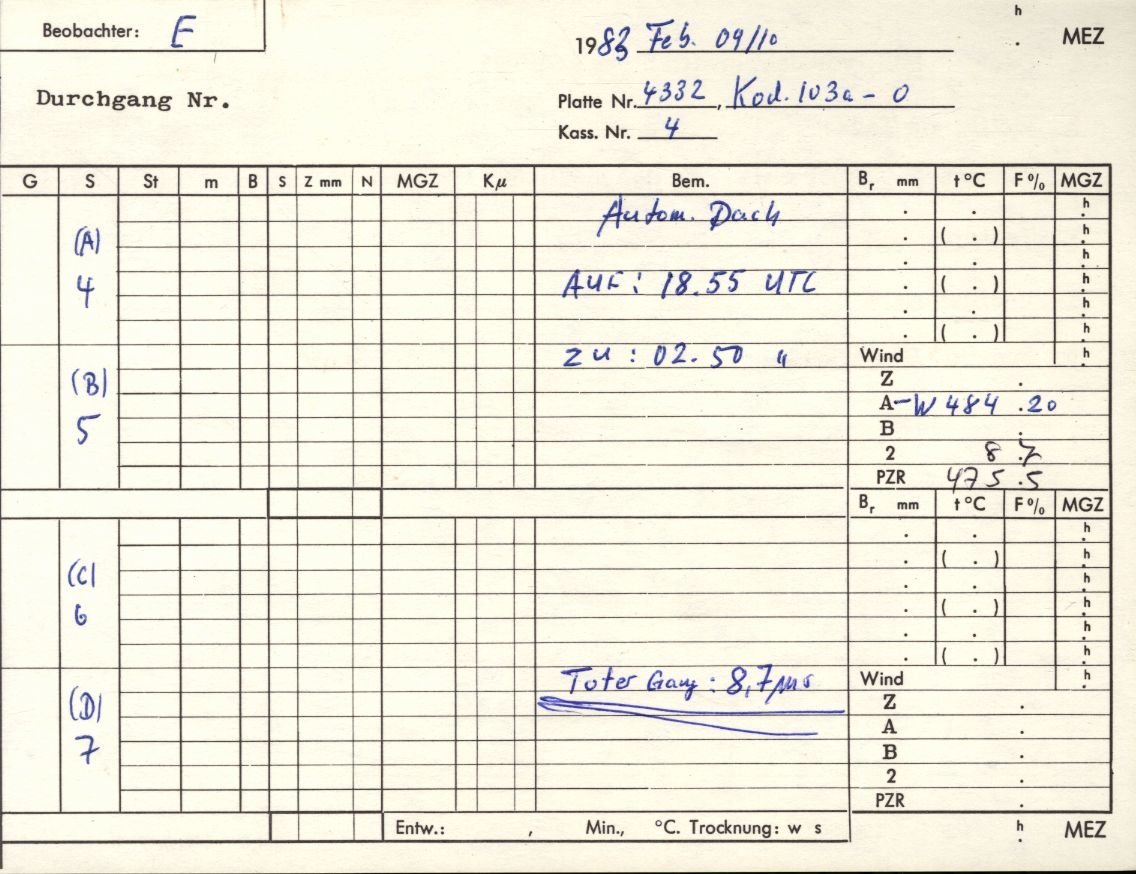 Beobachter: E
h
. MEZ
1983 Feb. 09/10
Durchgang Nr.
Platte Nr. 4332, Kod. 103a-O
Kass. Nr. 4
G S St m B S Z mm N MGZ Kμ Bem. Br mm t °C F% MGZ
Autom. Dach . . h.
(A) . ( . ) h.
. . h.
4 AUF: 18.55 UTC . ( . ) h.
. . h.
. ( . ) h.
zu: 02.50 " Wind h.
(B) Z .
A -W 484 .20
5 B .
2 8 .7
PZR 475 .5
Br mm t °C F% MGZ
. . h.
(C) . ( . ) h.
. . h.
6 . ( . ) h.
. . h.
. ( . ) h.
Toter Gang: 8,7 ms Wind h.
(D) Z .
A .
7 B .
2 .
PZR .
Entw.: , Min., °C. Trocknung: w s h. MEZ